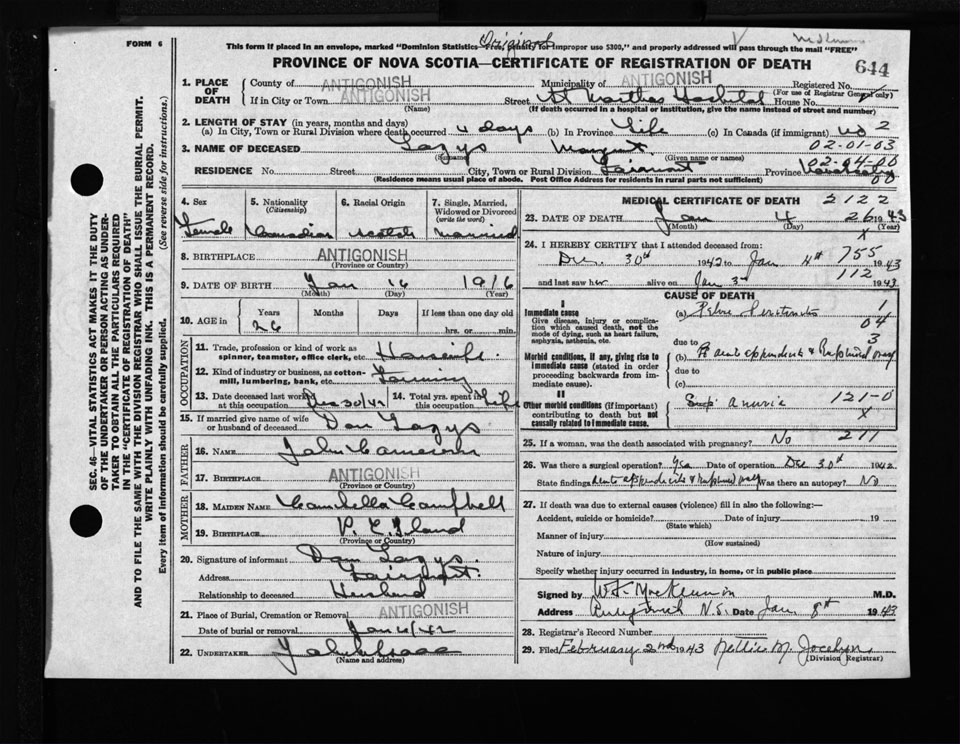 Original
FORM 6
This form if placed in an envelope, marked "Dominion Statistics—Free, Penalty for improper use $300," and properly addressed will pass through the mail "FREE"
PROVINCE OF NOVA SCOTIA—CERTIFICATE OF REGISTRATION OF DEATH
644
1. PLACE OF DEATH
County of ANTIGONISH Municipality of ANTIGONISH Registered No.
(For use of Registrar General only)
If in City or Town ANTIGONISH Street St Martha's Hospital House No.
(Name) (If death occurred in a hospital or institution, give the name instead of street and number)
2. LENGTH OF STAY (in years, months and days)
(a) In City, Town or Rural Division where death occurred 4 days (b) In Province Life (c) In Canada (if immigrant) no 2
02-01-03
3. NAME OF DECEASED
(Surname) (Given name or names)
02-04-00
RESIDENCE No. Street City, Town or Rural Division Fairmont Province Nova Scotia
(Residence means usual place of abode. Post Office Address for residents in rural parts not sufficient)
4. Sex Female
5. Nationality (Citizenship) Canadian
6. Racial Origin Scotch
7. Single, Married, Widowed or Divorced (write the word) Married
8. BIRTHPLACE ANTIGONISH
(Province or Country)
9. DATE OF BIRTH Jan 16 1916
(Month) (Day) (Year)
10. AGE in Years Months Days If less than one day old
26 hrs. or min.
OCCUPATION
11. Trade, profession or kind of work as spinner, teamster, office clerk, etc. Housewife
12. Kind of industry or business, as cotton-mill, lumbering, bank, etc. Farming
13. Date deceased last worked at this occupation Dec 30/42 14. Total yrs. spent in this occupation Life
15. If married give name of wife or husband of deceased Dan
FATHER
16. NAME John Cameron
17. BIRTHPLACE ANTIGONISH
(Province or Country)
MOTHER
18. MAIDEN NAME Campbell
19. BIRTHPLACE P. E. Island
(Province or Country)
20. Signature of informant Dan
Address Fairmont
Relationship to deceased Husband
21. Place of Burial, Cremation or Removal ANTIGONISH
Date of burial or removal
22. UNDERTAKER
(Name and address)
MEDICAL CERTIFICATE OF DEATH 2122
23. DATE OF DEATH Jan 4 26 1943
(Month) (Day) (Year)
X
24. I HEREBY CERTIFY that I attended deceased from 755
Dec. 30th 1942 to Jan 4th 1943
112
and last saw her alive on Jan 3 1943
CAUSE OF DEATH
I
Immediate cause
Give disease, injury or complication which caused death, not the mode of dying, such as heart failure, asphyxia, asthenia, etc.
(a) Pelvic Peritonitis 1
04
due to 3
Morbid conditions, if any, giving rise to immediate cause (stated in order proceeding backwards from immediate cause).
(b) appendicitis & Ruptured ovary
due to
(c)
II
Other morbid conditions (if important) contributing to death but not causally related to immediate cause.
anuria 121-0
X
25. If a woman, was the death associated with pregnancy? No 211
26. Was there a surgical operation? Yes Date of operation Dec 30th 1942
State findings Acute appendicitis & ruptured ovary Was there an autopsy? No
27. If death was due to external causes (violence) fill in also the following:—
Accident, suicide or homicide? Date of injury 19
(State which)
Manner of injury
(How sustained)
Nature of injury
Specify whether injury occurred in industry, in home, or in public place
Signed by M.D.
Address N.S. Date Jan 8th 1943
28. Registrar's Record Number
29. Filed February 2nd 1943 Nettie M. Jocelyn
(Division Registrar)
SEC. 46—VITAL STATISTICS ACT MAKES IT THE DUTY OF THE UNDERTAKER OR PERSON ACTING AS UNDERTAKER TO OBTAIN ALL THE PARTICULARS REQUIRED IN THE "CERTIFICATE OF REGISTRATION OF DEATH" AND TO FILE THE SAME WITH THE DIVISION REGISTRAR WHO SHALL ISSUE THE BURIAL PERMIT.
WRITE PLAINLY WITH UNFADING INK. THIS IS A PERMANENT RECORD.
Every item of information should be carefully supplied. (See reverse side for instructions.)